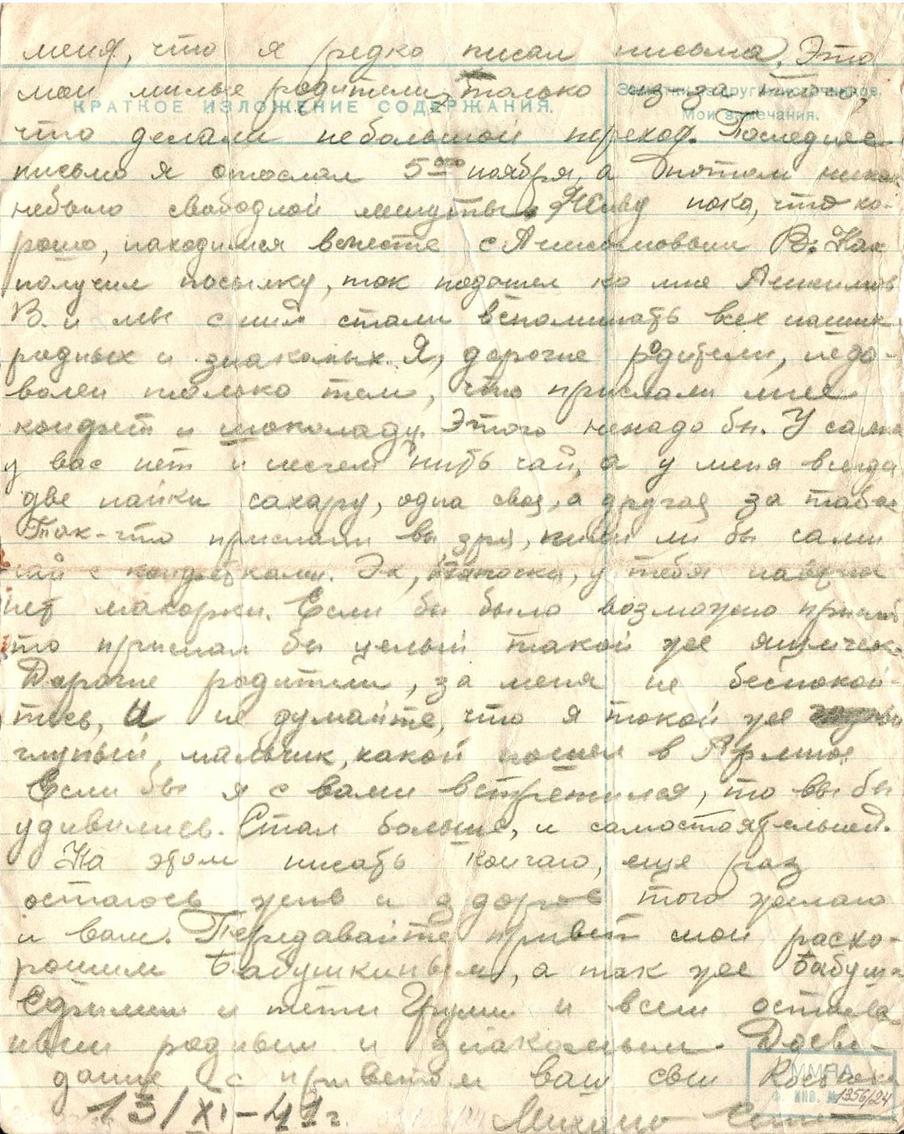 меня, что я редко писал письма. Это
мои милые родители, только из-за того,
КРАТКОЕ ИЗЛОЖЕНИЕ СОДЕРЖАНИЯ.
Мои замечания.
что делали небольшой переход. Последнее
письмо я отослал 5ого ноября, а потом
небыло свободной минуты. Живу пока, что хо-
рошо, находимся вместе с Анисимовым В. Как
получил посылку, так подошел ко мне Анисимов
В. и мы с ним стали вспоминать всех наших
родных и знакомых. Я, дорогие родители, недо-
волен только тем, что прислали мне
конфет и шоколаду. Этого ненадо бы. У самих
у вас нет и несчем пить чай, а у меня всегда
две пайки сахару, одна своя, а другая за табак
Так-что прислали вы зря, пили ли бы сами
чай с конфетками. Эх, папочка, у тебя наверн
нет махорки. Если бы было возможно
то прислал бы целый такой же ящичек.
Дорогие родители, за меня не беспокой-
тесь, и не думайте, что я такой же
глупый, мальчик, какой пошел в Армию.
Если бы я с вами встретился, то вы бы
удивились. Стал больше, и самостоятельней.
На этом писать кончаю, еще раз
остаюсь жив и здоров того желаю
и вам. Передавайте привет мои расхо-
рошим Бабушкиным, а так же бабуш
и тети Груни и всем осталь
ным родным и знакомым. Досви-
дание с приветом ваш сын
13/XI-41г.
1356/24